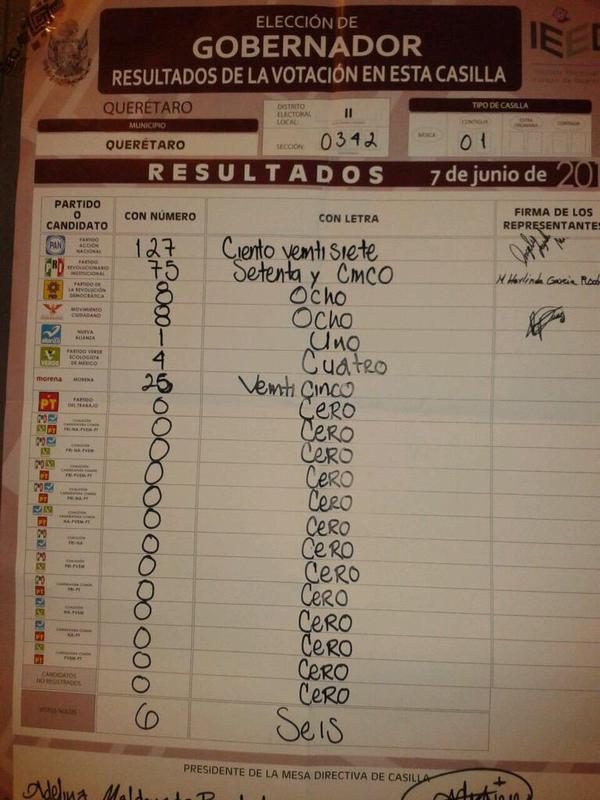 ELECCIÓN DE
GOBERNADOR
RESULTADOS DE LA VOTACIÓN EN ESTA CASILLA
IEEQ
QUERÉTARO
MUNICIPIO
QUERÉTARO
DISTRITO ELECTORAL LOCAL: II
SECCIÓN: 0342
TIPO DE CASILLA
BÁSICA CONTIGUA 01
RESULTADOS 7 de junio de 201
PARTIDO O CANDIDATO CON NÚMERO CON LETRA FIRMA DE LOS REPRESENTANTES
PAN PARTIDO ACCIÓN NACIONAL 127 Ciento veintisiete
PRI PARTIDO REVOLUCIONARIO INSTITUCIONAL 75 Setenta y Cinco M Harlinda Garcia
PRD PARTIDO DE LA REVOLUCIÓN DEMOCRÁTICA 8 Ocho
MOVIMIENTO CIUDADANO 8 Ocho
alianza NUEVA ALIANZA 1 Uno
VERDE PARTIDO VERDE ECOLOGISTA DE MÉXICO 4 Cuatro
morena MORENA 25 Veinti Cinco
PT PARTIDO DEL TRABAJO 0 CERO
PRI-NA-PVEM-PT 0 CERO
PRI-NA-PVEM 0 CERO
PRI-PVEM-PT 0 CERO
PRI-NA-PT 0 CERO
NA-PVEM-PT 0 CERO
PRI-NA 0 CERO
PRI-PVEM 0 CERO
PRI-PT 0 CERO
NA-PVEM 0 CERO
NA-PT 0 CERO
PVEM-PT 0 CERO
CANDIDATOS NO REGISTRADOS 0 CERO
VOTOS NULOS 6 Seis
PRESIDENTE DE LA MESA DIRECTIVA DE CASILLA
Adelina